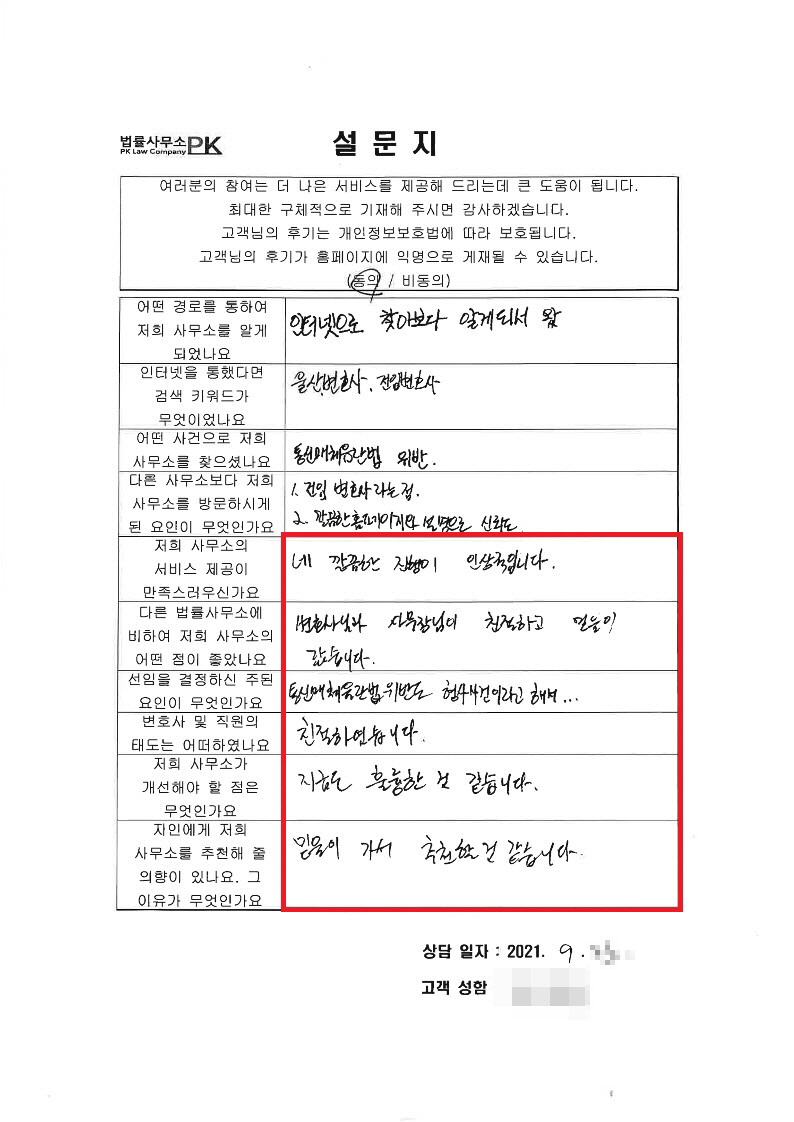 법률사무소PK
PK Law Company
설 문 지
여러분의 참여는 더 나은 서비스를 제공해 드리는데 큰 도움이 됩니다.
최대한 구체적으로 기재해 주시면 감사하겠습니다.
고객님의 후기는 개인정보보호법에 따라 보호됩니다.
고객님의 후기가 홈페이지에 익명으로 게재될 수 있습니다.
(동의 / 비동의)
어떤 경로를 통하여
저희 사무소를 알게
되었나요
인터넷으로 찾아보다 알게되서 왔
인터넷을 통했다면
검색 키워드가
무엇이었나요
울산변호사, 전임변호사
어떤 사건으로 저희
사무소를 찾으셨나요
통신매체음란법 위반.
다른 사무소보다 저희
사무소를 방문하시게
된 요인이 무엇인가요
1. 전임 변호사라는점.
2. 깔끔한 홈페이지와 설명으로 신뢰도
저희 사무소의
서비스 제공이
만족스러우신가요
네 깔끔한 진행이 인상적입니다.
다른 법률사무소에
비하여 저희 사무소의
어떤 점이 좋았나요
변호사님과 사무장님이 친절하고 믿음이
갔습니다.
선임을 결정하신 주된
요인이 무엇인가요
통신매체음란법위반도 형사사건이라고 해서...
변호사 및 직원의
태도는 어떠하였나요
친절하였습니다.
저희 사무소가
개선해야 할 점은
무엇인가요
지금도 훌륭한 것 같습니다.
지인에게 저희
사무소를 추천해 줄
의향이 있나요. 그
이유가 무엇인가요
믿음이 가서 추천할 것 같습니다.
상담 일자 : 2021. 9.
고객 성함